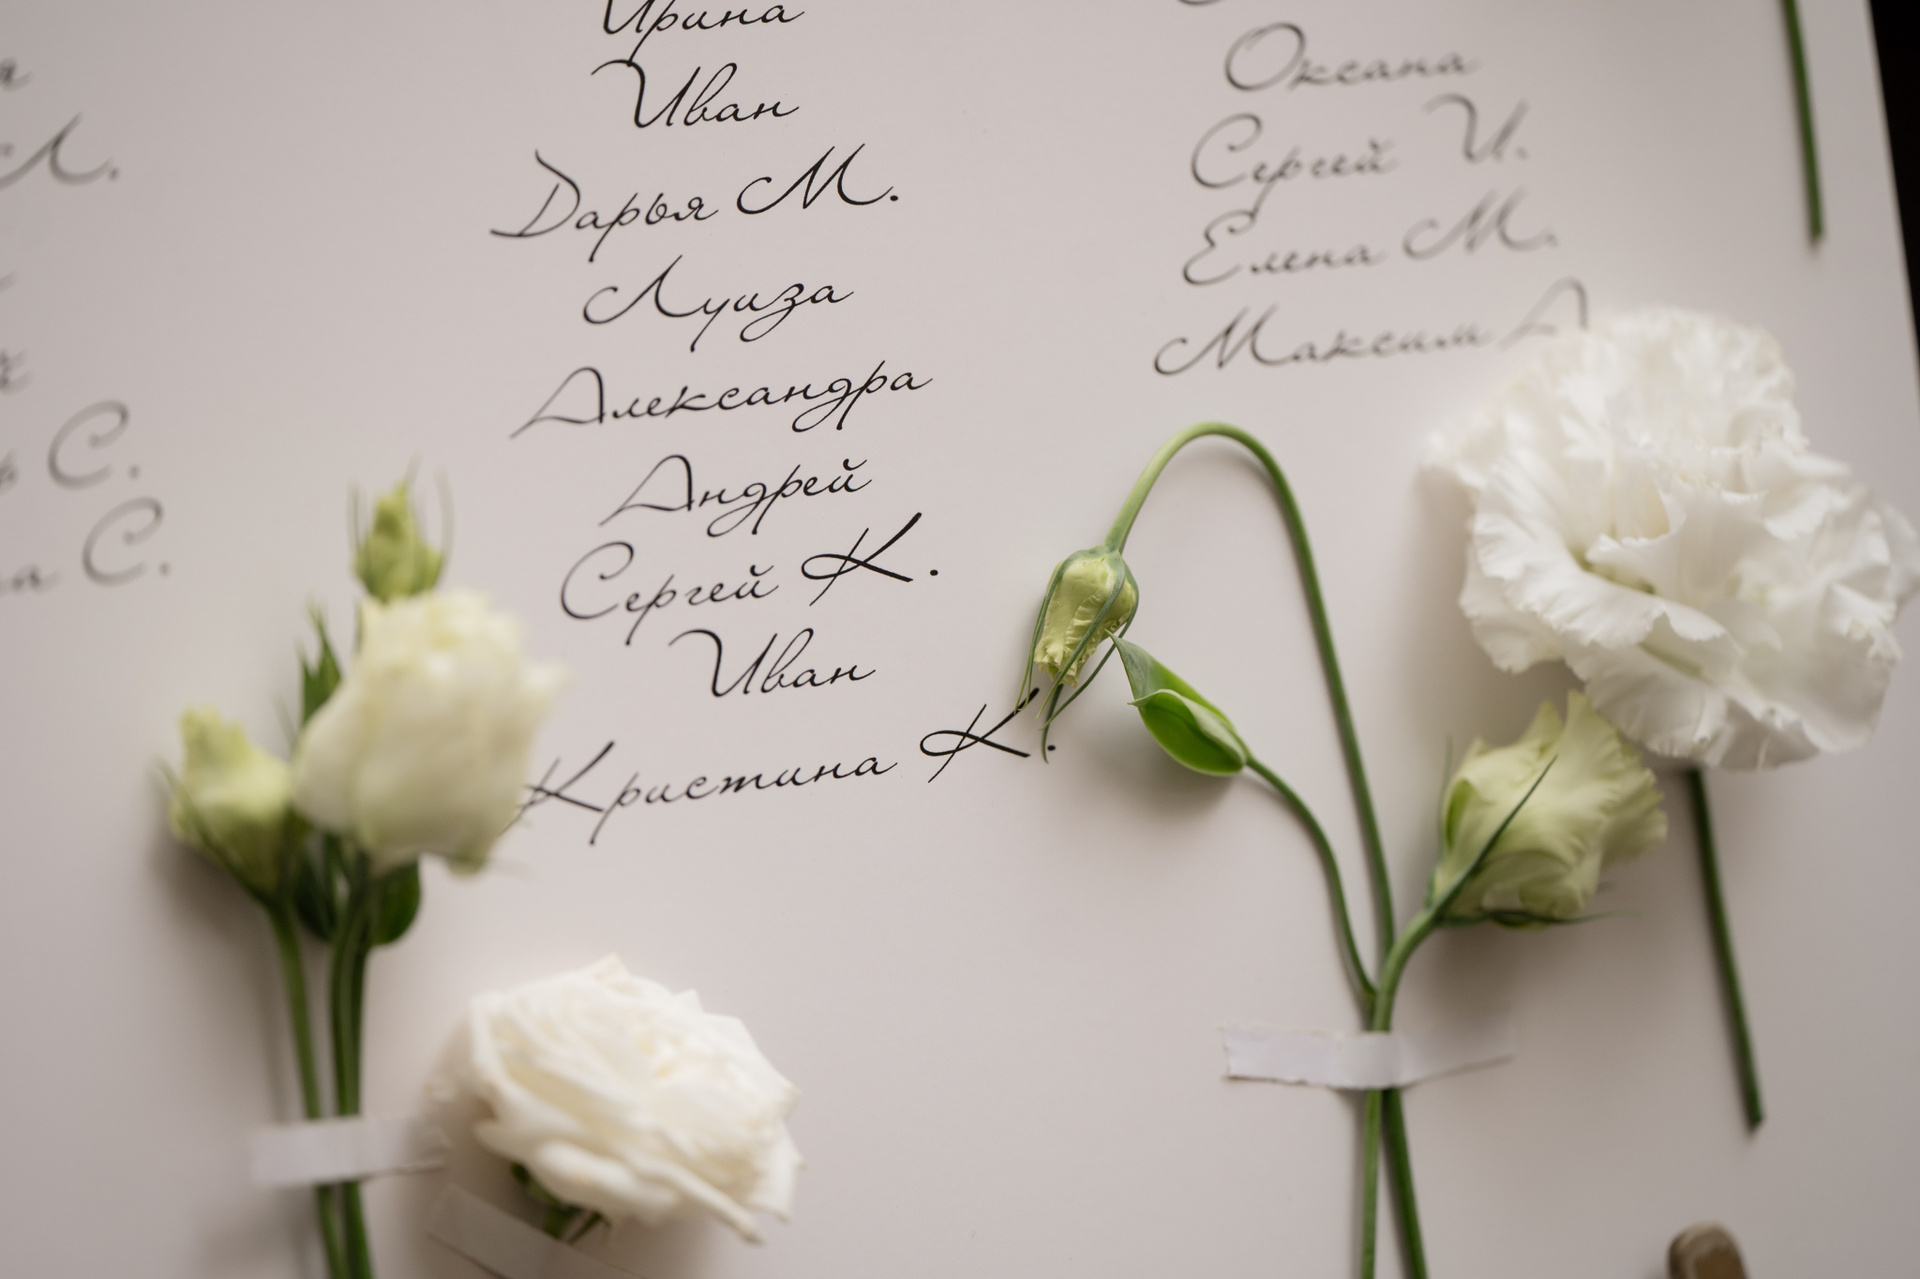 Л.
С.
С.
Ирина
Иван
Дарья М.
Луиза
Александра
Андрей
Сергей К.
Иван
Кристина К.
Оксана
Сергей И.
Елена М.
Максим А